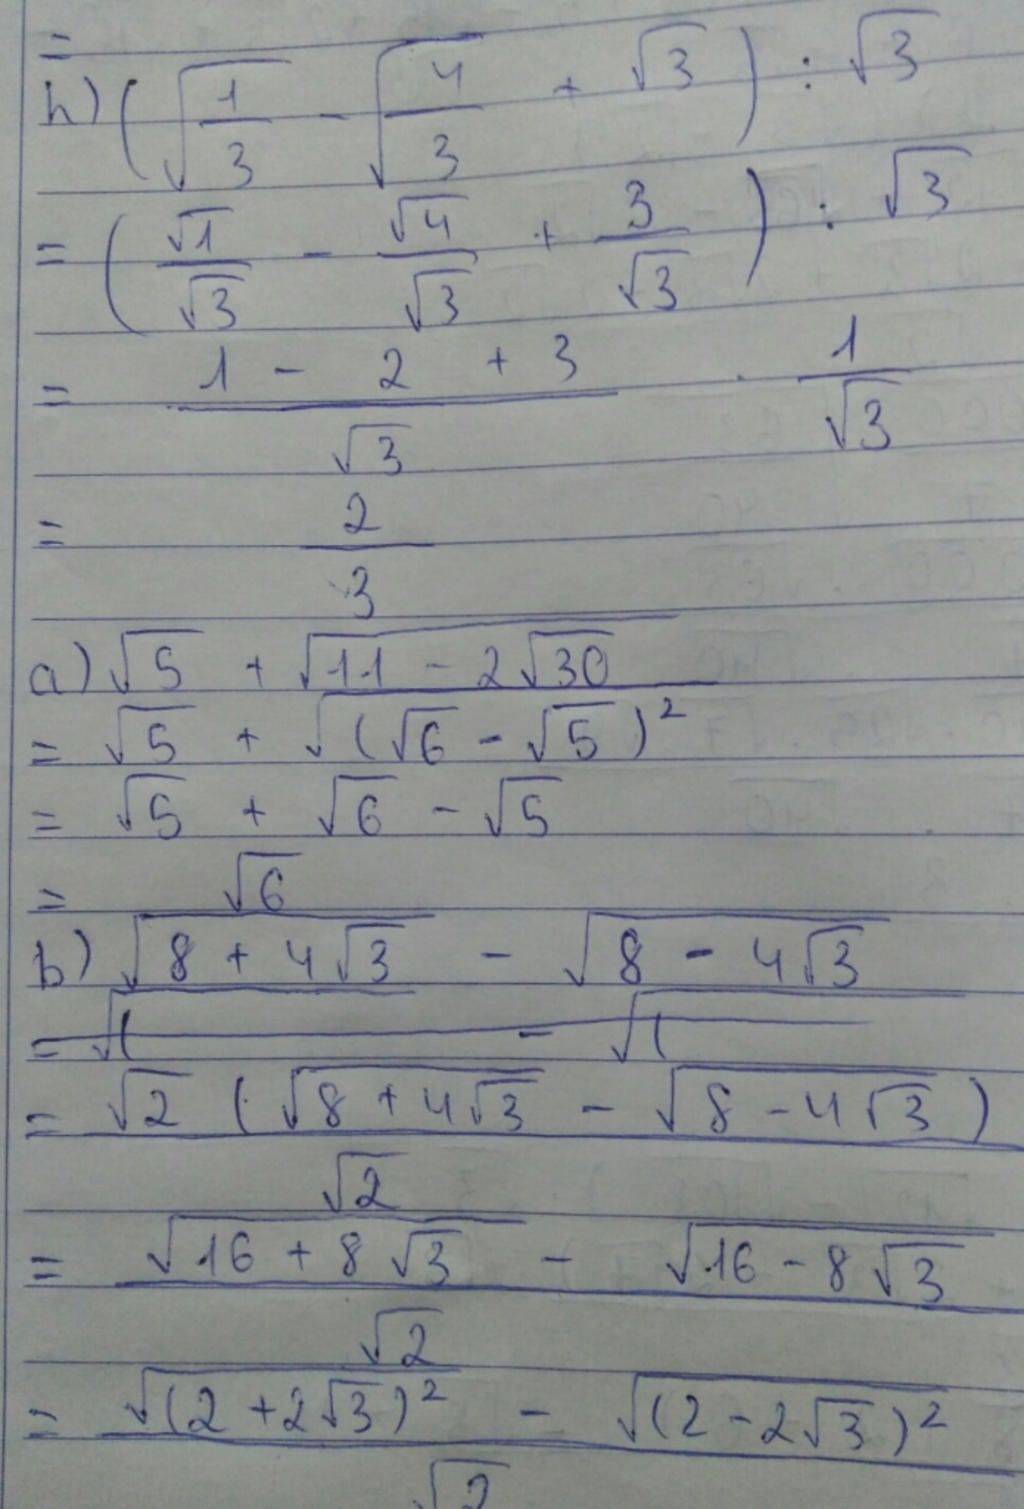 =
h) (√(1/3) - √(4/3) + √3) : √3
= (√1/√3 - √4/√3 + 3/√3) : √3
= (1 - 2 + 3)/√3 . 1/√3
= 2/3
a) √5 + √(11 - 2√30)
= √5 + √((√6 - √5)²)
= √5 + √6 - √5
= √6
b) √(8 + 4√3) - √(8 - 4√3)
= √( - √(
= √2 (√(8 + 4√3) - √(8 - 4√3))/√2
= (√(16 + 8√3) - √(16 - 8√3))/√2
= (√((2 + 2√3)²) - √((2 - 2√3)²))/√2